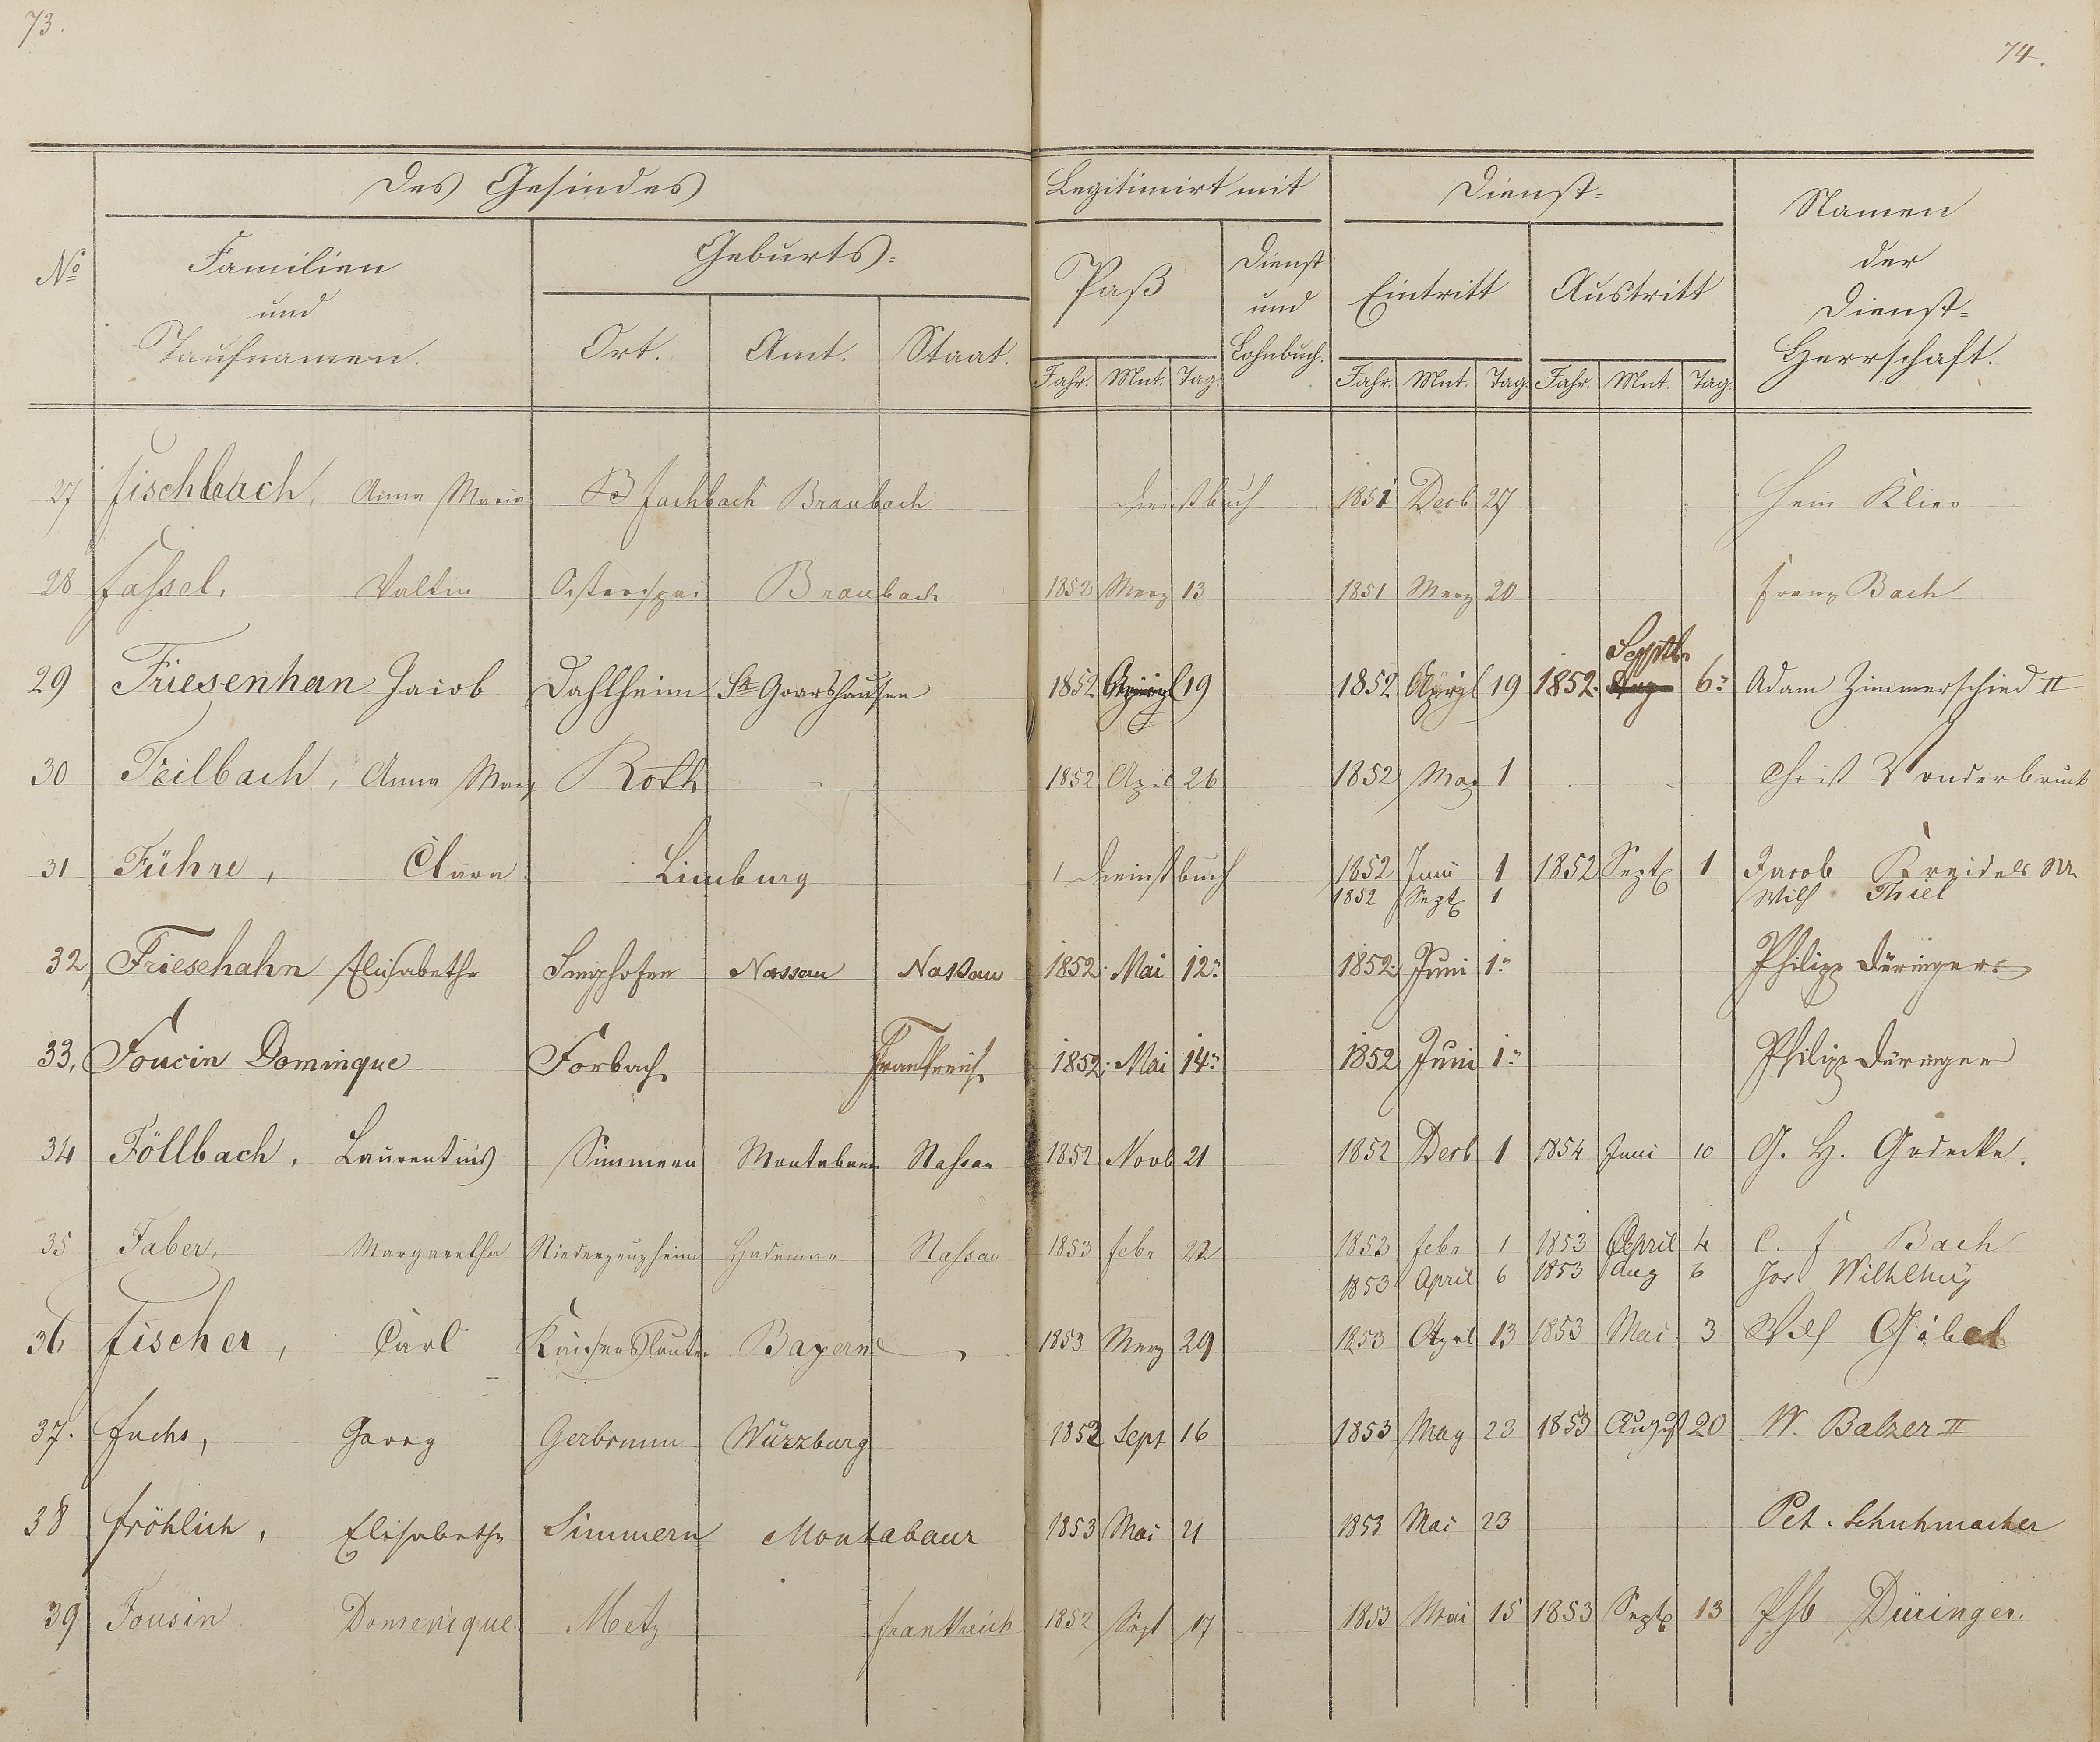 73.
74.
Des Gesindes
Legitimirt mit
Dienst=
Namen
der
Dienst=
Herrschaft.
No
Familien
und
Taufnamen.
Geburts=
Ort. Amt. Staat.
Paß
Dienst
und
Lohnbuch.
Eintritt Austritt
Jahr. Mnt. Tag. Jahr. Mnt. Tag. Jahr. Mnt. Tag.
27 Fischbach, Anna Maria Fachbach Braubach Dienstbuch 1851 Decb 27 Hein Klier
28 Fassel, Valtin Osterspai Braubach 1852 Merz 13 1851 Merz 20 Franz Bach
Septb.
29 Friesenhan Jacob Dahlheim St Goarshausen 1852 April 19 1852 April 19 1852. Aug 6. Adam Zimmerschied II
30 Feilbach, Anna Marg Roth 1852 April 26 1852 May 1 Christ Vonderbruck
31 Führe, Clara Limburg 1 Dienstbuch 1852 Juni 1 1852 Sept 1 Jacob Kreidels
1852 Sept 1 Wilh Thiel
32, Friesehahn Elisabetha Singhofen Nassau Nassau 1852. Mai 12. 1852. Juni 1. Philipp Düringer
33, Foucin Dominque Forbach Frankreich 1852. Mai 14. 1852 Juni 1. Philipp Düringer
34 Föllbach, Laurentius Simmern Montabaur Nassau 1852 Novb 21 1852 Decb 1 1854 Juni 10 G. H. Godecke.
35 Faber, Margaretha Niederzeuzheim Hadamar Nassau 1853 Febr 22 1853 Febr 1 1853 April 4 C. F Bach
1853 April 6 1853 Aug 6 Jos. Wilhelmy
36 Fischer, Carl Kaiserslauter Bayern 1853 Merz 29 1853 April 13 1853 Mai 3 Wilh Göbel
37. Fuchs, Georg Gerbrunn Würzburg 1852 Sept 16 1853 May 23 1853 August 20 W. Balzer II
38 Fröhlich, Elisabetha Simmern Montabaur 1853 Mai 21 1853 Mai 23 Pet. Schuhmacher
39 Fousin Domenique. Metz Frankreich 1852 Sept 17 1853 Mai 15 1853 Sept 13 Phb Düringer.